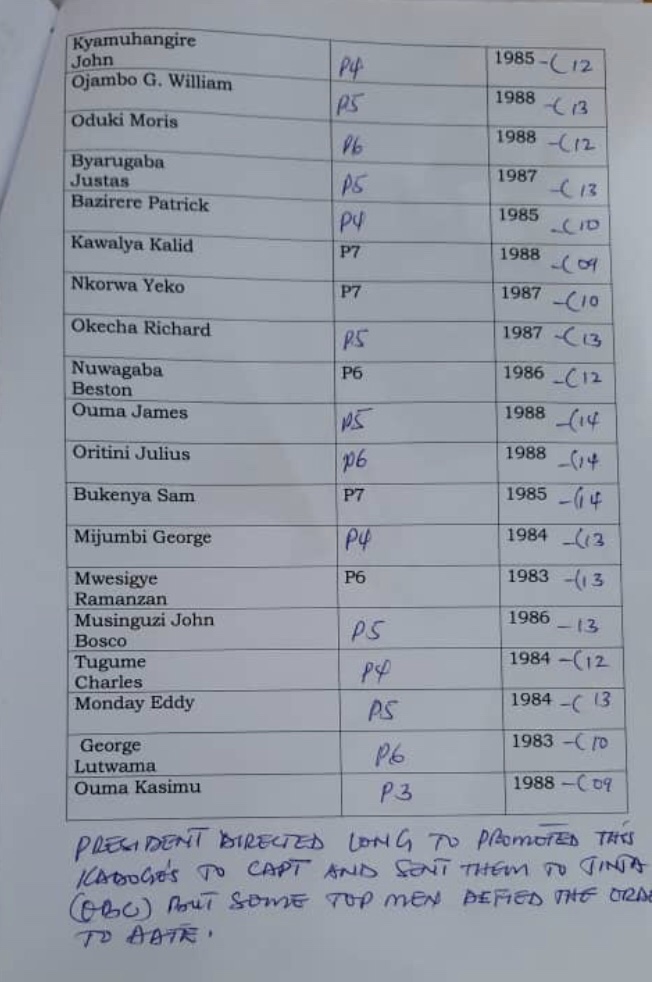 Kyamuhangire
John P4 1985 -( 12
Ojambo G. William P5 1988 -( 13
Oduki Moris P6 1988 -( 12
Byarugaba
Justas P5 1987 -( 13
Bazirere Patrick P4 1985 -( 10
Kawalya Kalid P7 1988 -( 09
Nkorwa Yeko P7 1987 -( 10
Okecha Richard P5 1987 -( 13
Nuwagaba
Beston P6 1986 -( 12
Ouma James P5 1988 -( 14
Oritini Julius P6 1988 -( 14
Bukenya Sam P7 1985 -( 14
Mijumbi George P4 1984 -( 13
Mwesigye
Ramanzan P6 1983 -( 13
Musinguzi John
Bosco P5 1986 - 13
Tugume
Charles P4 1984 -( 12
Monday Eddy P5 1984 -( 13
George
Lutwama P6 1983 -( 10
Ouma Kasimu P3 1988 -( 09
PRESIDENT DIRECTED LONG TO PROMOTED THIS
KADOGE'S TO CAPT AND SENT THEM TO JINJA
(OBC) BUT SOME TOP MEN DEFIED THE
TO DATE.